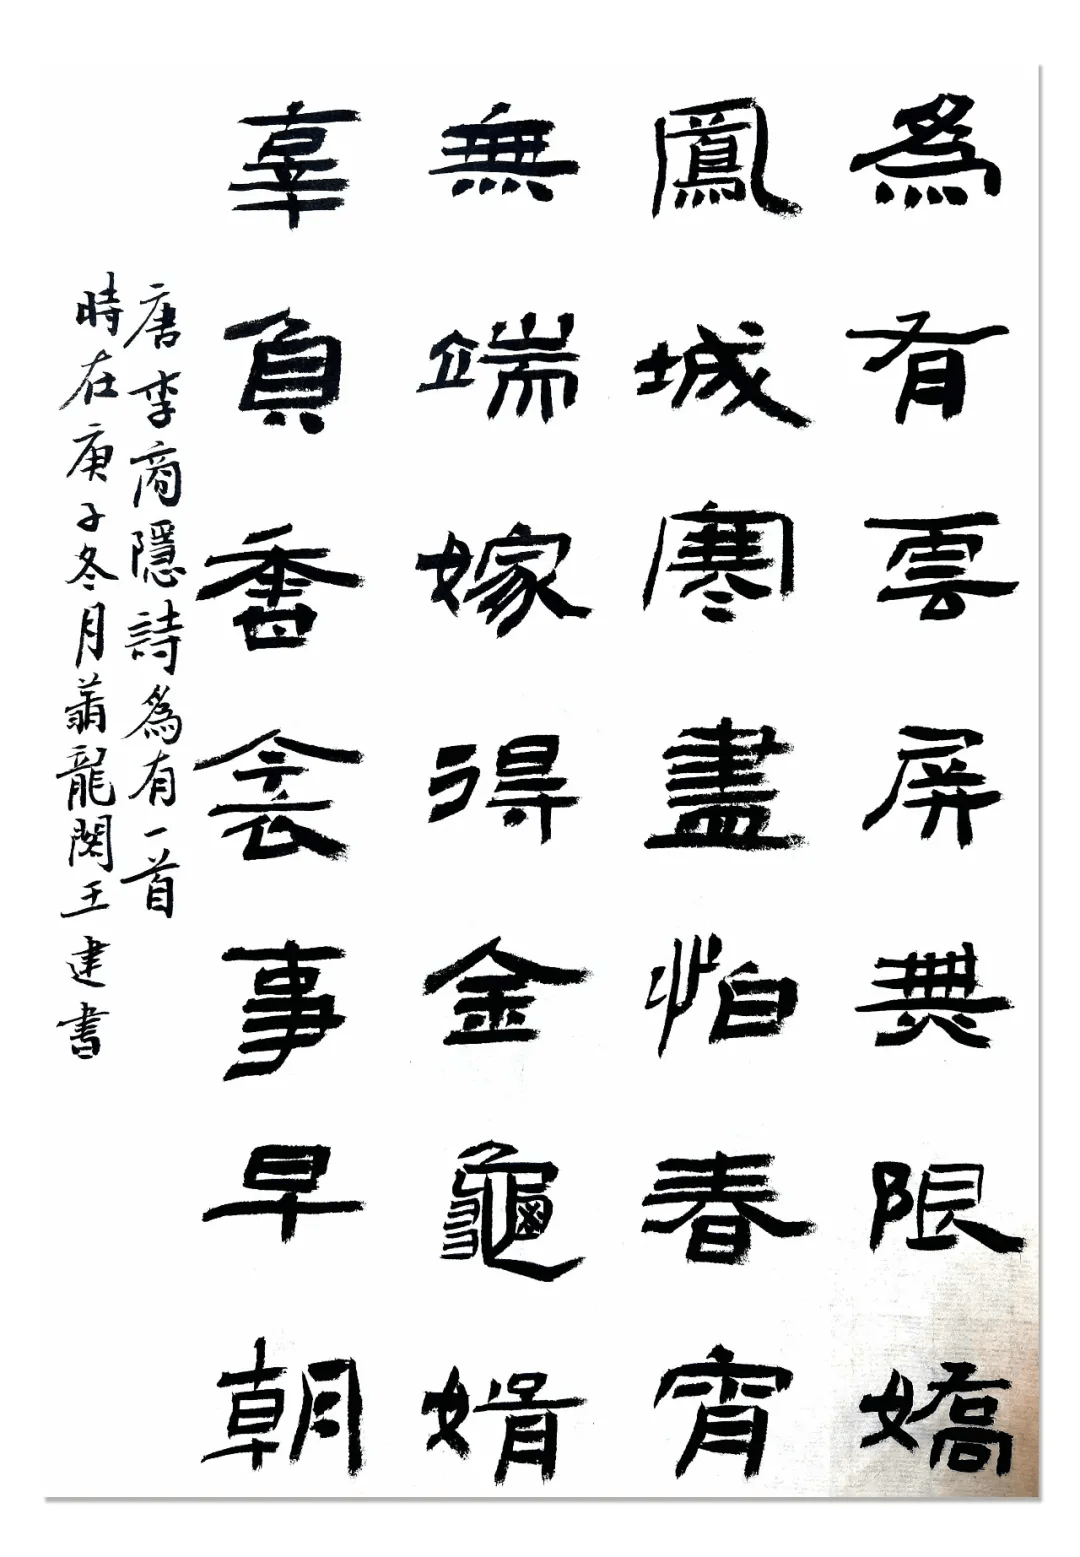 爲有雲屏無限嬌
鳳城寒盡怕春宵
無端嫁得金龜婿
辜負香衾事早朝
唐李商隱詩爲有一首
時在庚子冬月龍王建書